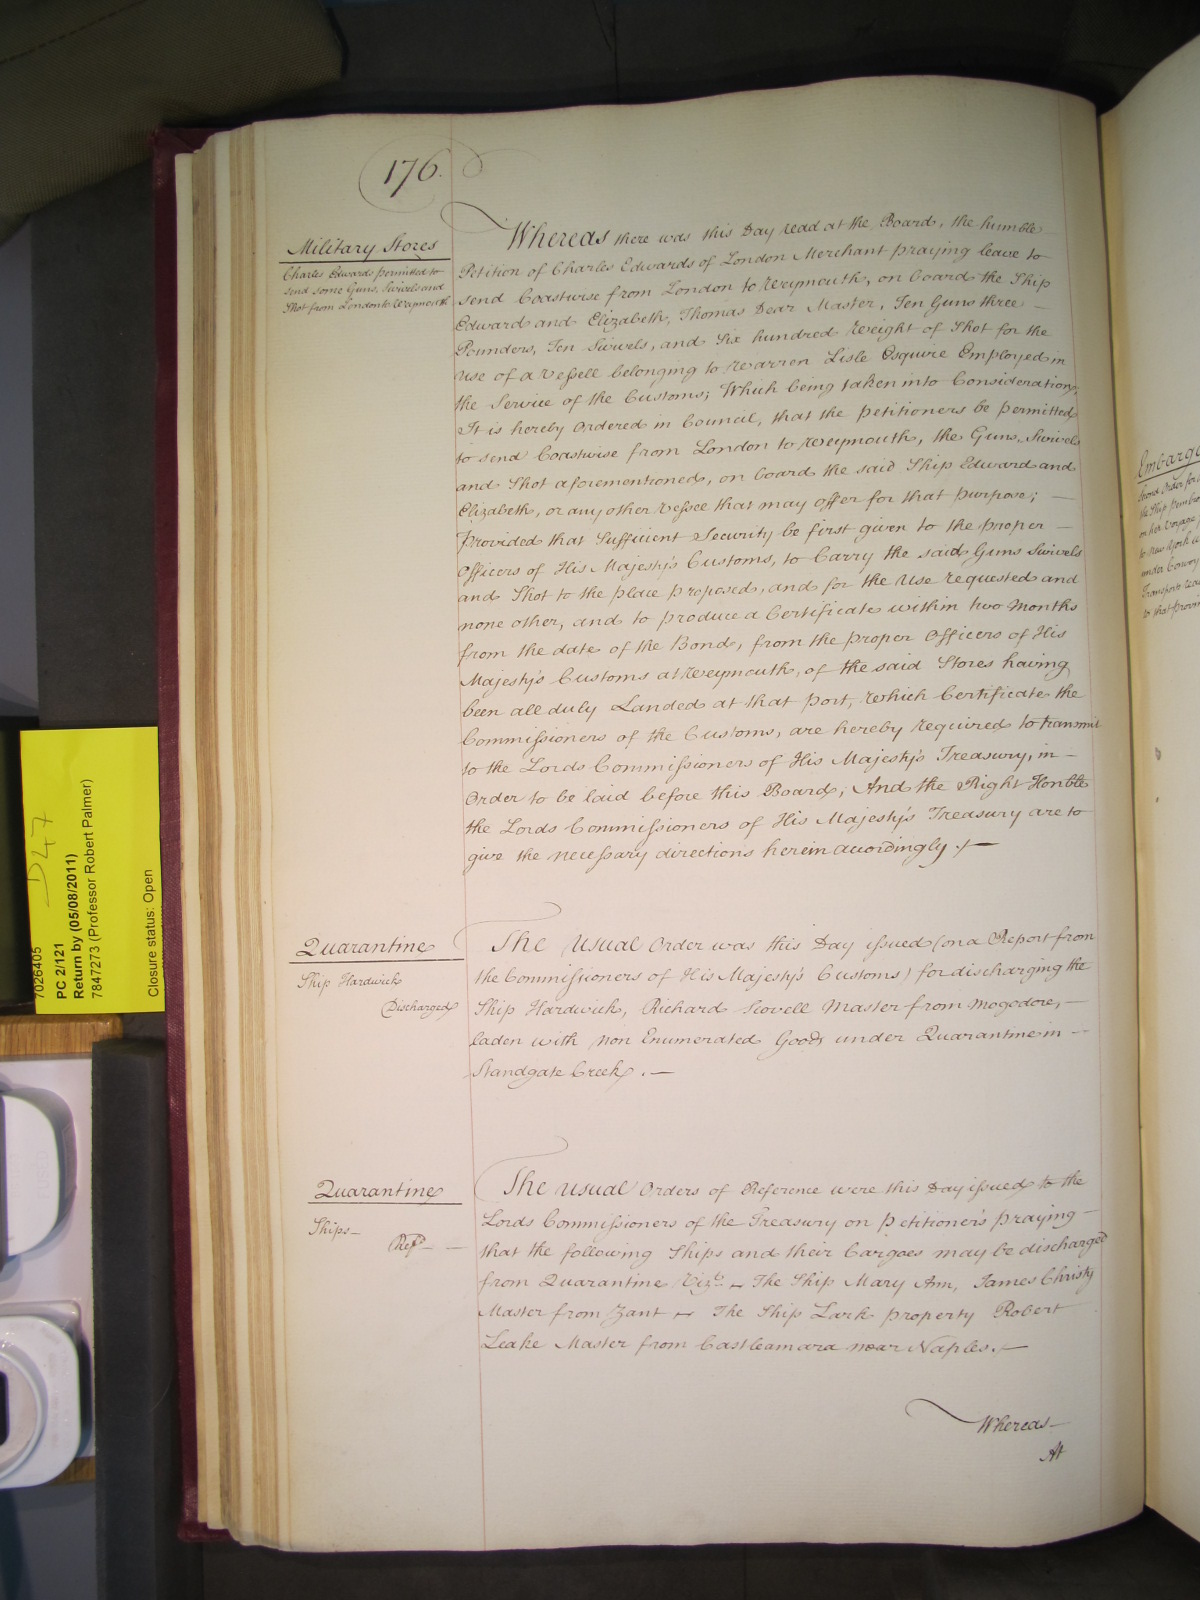 176.
Military Stores
Charles Edwards permitted to
send some Guns, Swivels and
Shot from London to Weymouth
Whereas there was this Day read at the Board, the humble
Petition of Charles Edwards of London Merchant praying leave to
send Coastwise from London to Weymouth, on board the Ship
Edward and Elizabeth, Thomas Dear Master, Ten Guns three
Pounders, Ten Swivels, and Six hundred Weight of Shot for the
use of a Vessell belonging to Warren Lisle Esquire Employed in
the Service of the Customs; Which being taken into Consideration,
It is hereby Ordered in Council, that the petitioners be permitted
to send Coastwise from London to Weymouth, the Guns, Swivels
and Shot aforementioned, on board the said Ship Edward and
Elizabeth, or any other Vessel that may offer for that purpose;
Provided that Sufficient Security be first given to the proper
Officers of His Majesty's Customs, to Carry the said Guns Swivels
and Shot to the place proposed, and for the Use requested and
none other, and to produce a Certificate within two Months
from the date of the Bond, from the proper Officers of His
Majesty's Customs at Weymouth, of the said Stores having
been all duly Landed at that Port, Which Certificate the
Commissioners of the Customs, are hereby required to transmit
to the Lords Commissioners of His Majesty's Treasury, in
Order to be laid before this Board; And the Right Honble
the Lords Commissioners of His Majesty's Treasury are to
give the necessary directions herein accordingly.
Quarantine
Ship Hardwick
Discharged
The Usual Order was this Day issued (on a Report from
the Commissioners of His Majesty's Customs) for discharging the
Ship Hardwick, Richard Scovell Master from Mogodore,
laden with Non Enumerated Goods under Quarantine in
Standgate Creek.
Quarantine
Ships
Refd
The Usual Orders of Reference were this Day issued to the
Lords Commissioners of the Treasury on petitioner's praying
that the following Ships and their Cargoes may be discharged
from Quarantine Vizt. The Ship Mary Ann, James Christy
Master from Zant The Ship Lark property Robert
Leake Master from Castleamara near Naples.
Whereas
At
Embargo
7026405
D47
PC 2/121
Return by (05/08/2011)
7847273 (Professor Robert Palmer)
Closure status: Open